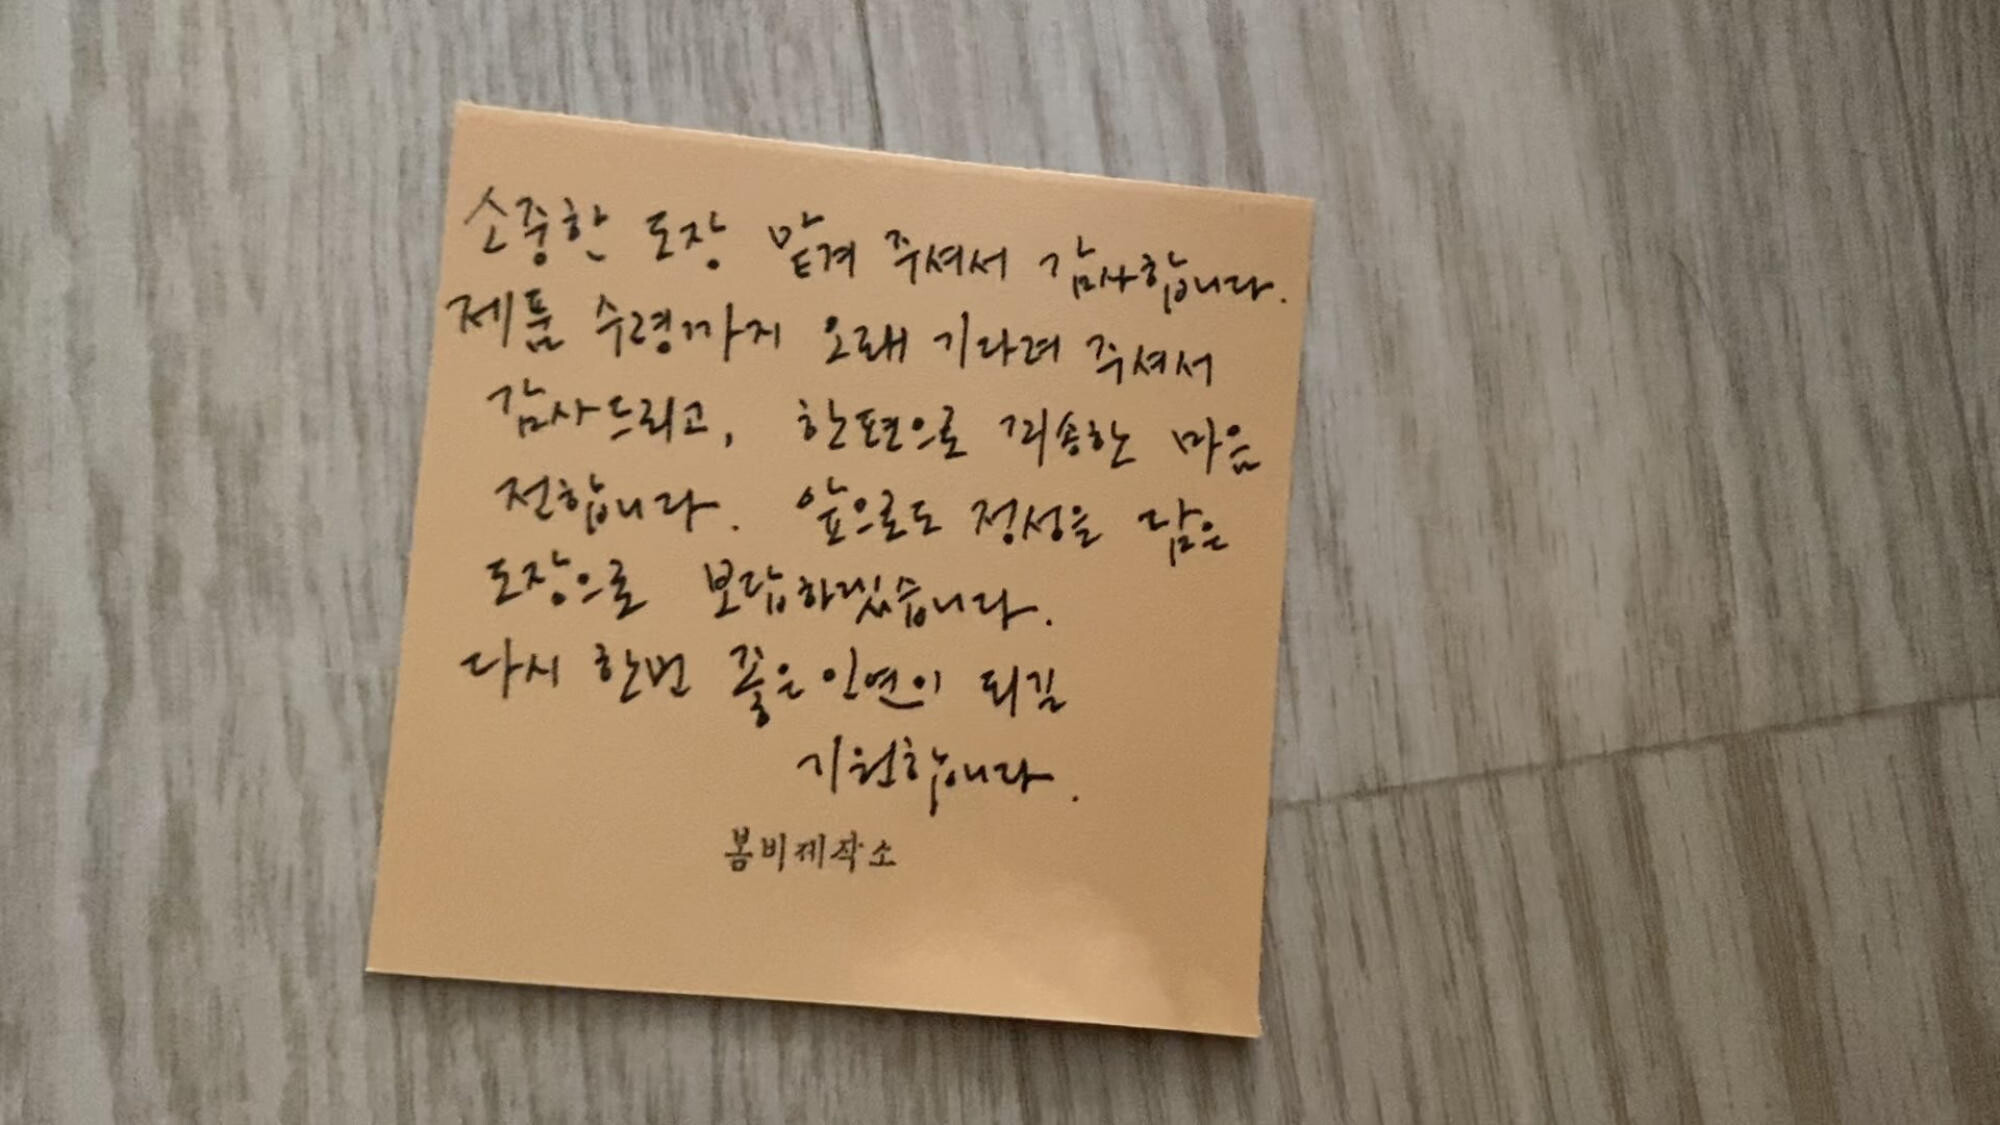 소중한 도장 맡겨 주셔서 감사합니다.
제품 수령까지 오래 기다려 주셔서
감사드리고, 한편으로 죄송한 마음
전합니다. 앞으로도 정성을 담은
도장으로 보답하겠습니다.
다시 한번 좋은 인연이 되길
기원합니다.
봄비제작소